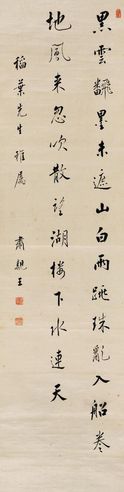 黑雲飜墨未遮山白雨跳珠亂入船卷
地風来忽吹散望湖樓下水連天
稲葉先生雅属 肅親王